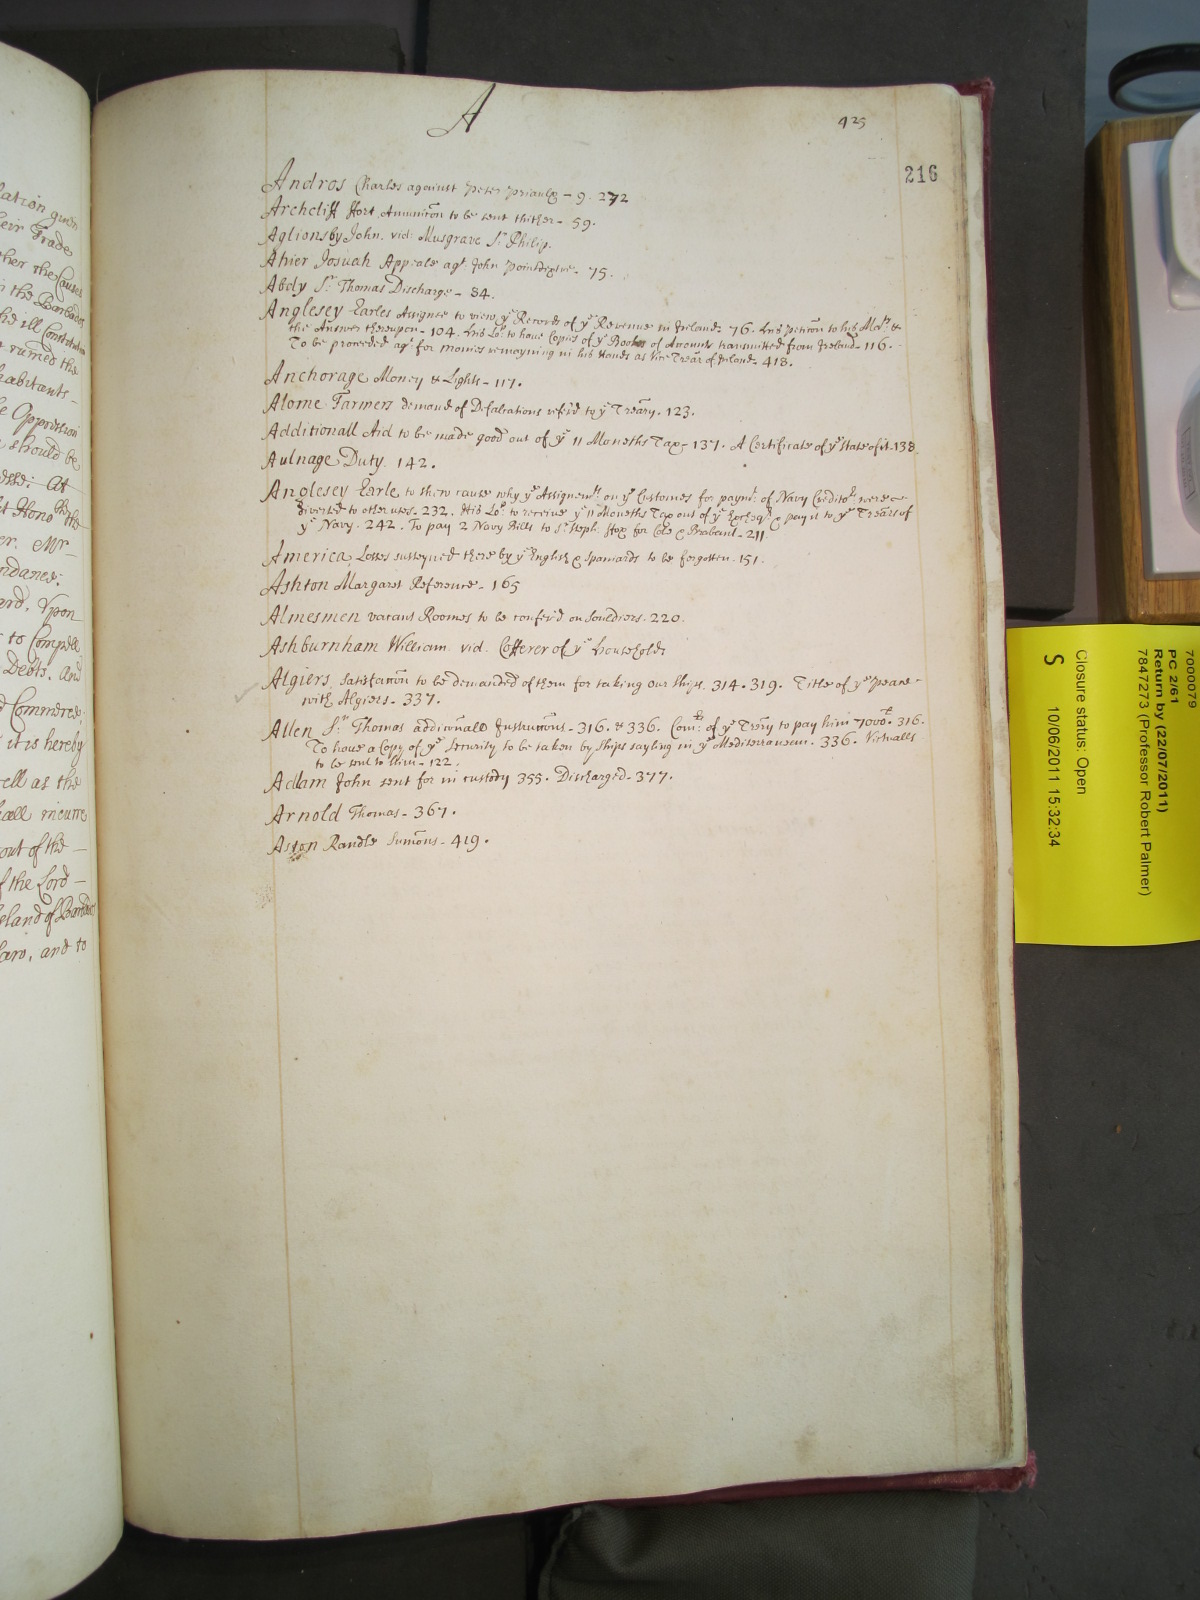 A
425
216
Andros Charles against Peter Priaulx - 9. 272
Archcliff Fort Amunicon to be sent thither - 59.
Aglionsby John. vid: Musgrave Sr. Philip.
Ahier Josuah Appeale agt. John Poindexter - 75.
Abdy Sr. Thomas Discharge - 84.
Anglesey Earles Assignes to view ye Records of ye Revenue in Ireland: 76. His peticon to his Maty. &
the Answer thereupon - 104. His Lop. to have Copies of ye Books of Accounts transmitted from Ireland - 116.
To be proceeded agt. for monies remayning in his Hands as Vice Trear of Ireland - 418.
Anchorage Money & Lights - 117.
Alome Farmers demand of Defalcations refer'd to ye Treary. 123.
Additionall Aid to be made good out of ye 11 Moneths Tax - 137. A Certificate of ye State of it - 138.
Aulnage Duty. 142.
Anglesey Earle to shew cause why ye Assignemts. on ye Customes for paymt. of Navy Creditors. were
diverted to other uses. 232. His Lop. to receive ye 11 Moneths Tax out of ye Excheqr. & pay it to ye Trears of
ye Navy. 242. To pay 2 Navy Bills to Sr. Steph. Fox for Cole & Brabant - 211
America, Losses susteyned there by ye English & Spaniards to be forgotten. 151.
Ashton Margaret Reference - 165
Almesmen vacant Roomes to be confer'd on Souldiors. 220.
Ashburnham William. vid. Cofferer of ye Household.
Algiers, satisfaction to be demanded of them for taking our Ships. 314. 319. Title of ye peace
with Algiers. 337.
Allen Sr. Thomas addiconall Instructions. 316. & 336. Comrs. of ye Treary to pay him 7000l. 316.
To have a Copy of ye Security to be taken by Ships sayling in ye Mediterranean. 336. Victualls
to be sent to him - 122.
Adlam John sent for in custody 355. Discharged - 377.
Arnold Thomas - 367.
Aston Randle sumons - 419.
lation given
heir Trade
the Causes
in the Barbados
the ill Constitution
ruined the
habitants -
Oppression
should be
At
Mr
Upon
to Compell
Debts. And
Commerce,
it is hereby
ell as the
all incurre
out of the -
f the Lord -
sland of Barbados
and to
7000079
PC 2/61
Return by (22/07/2011)
7847273 (Professor Robert Palmer)
Closure status: Open
S 10/06/2011 15:32:34